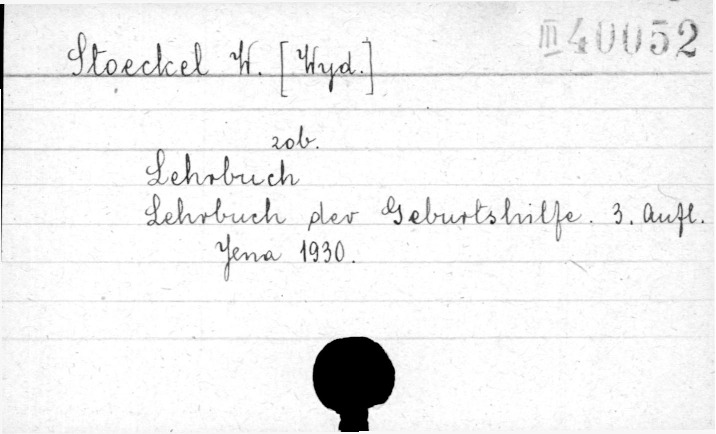 III 40052
Stoeckel W. [Wyd.]
zob.
Lehrbuch
Lehrbuch der Geburtshilfe. 3. Aufl.
Jena 1930.